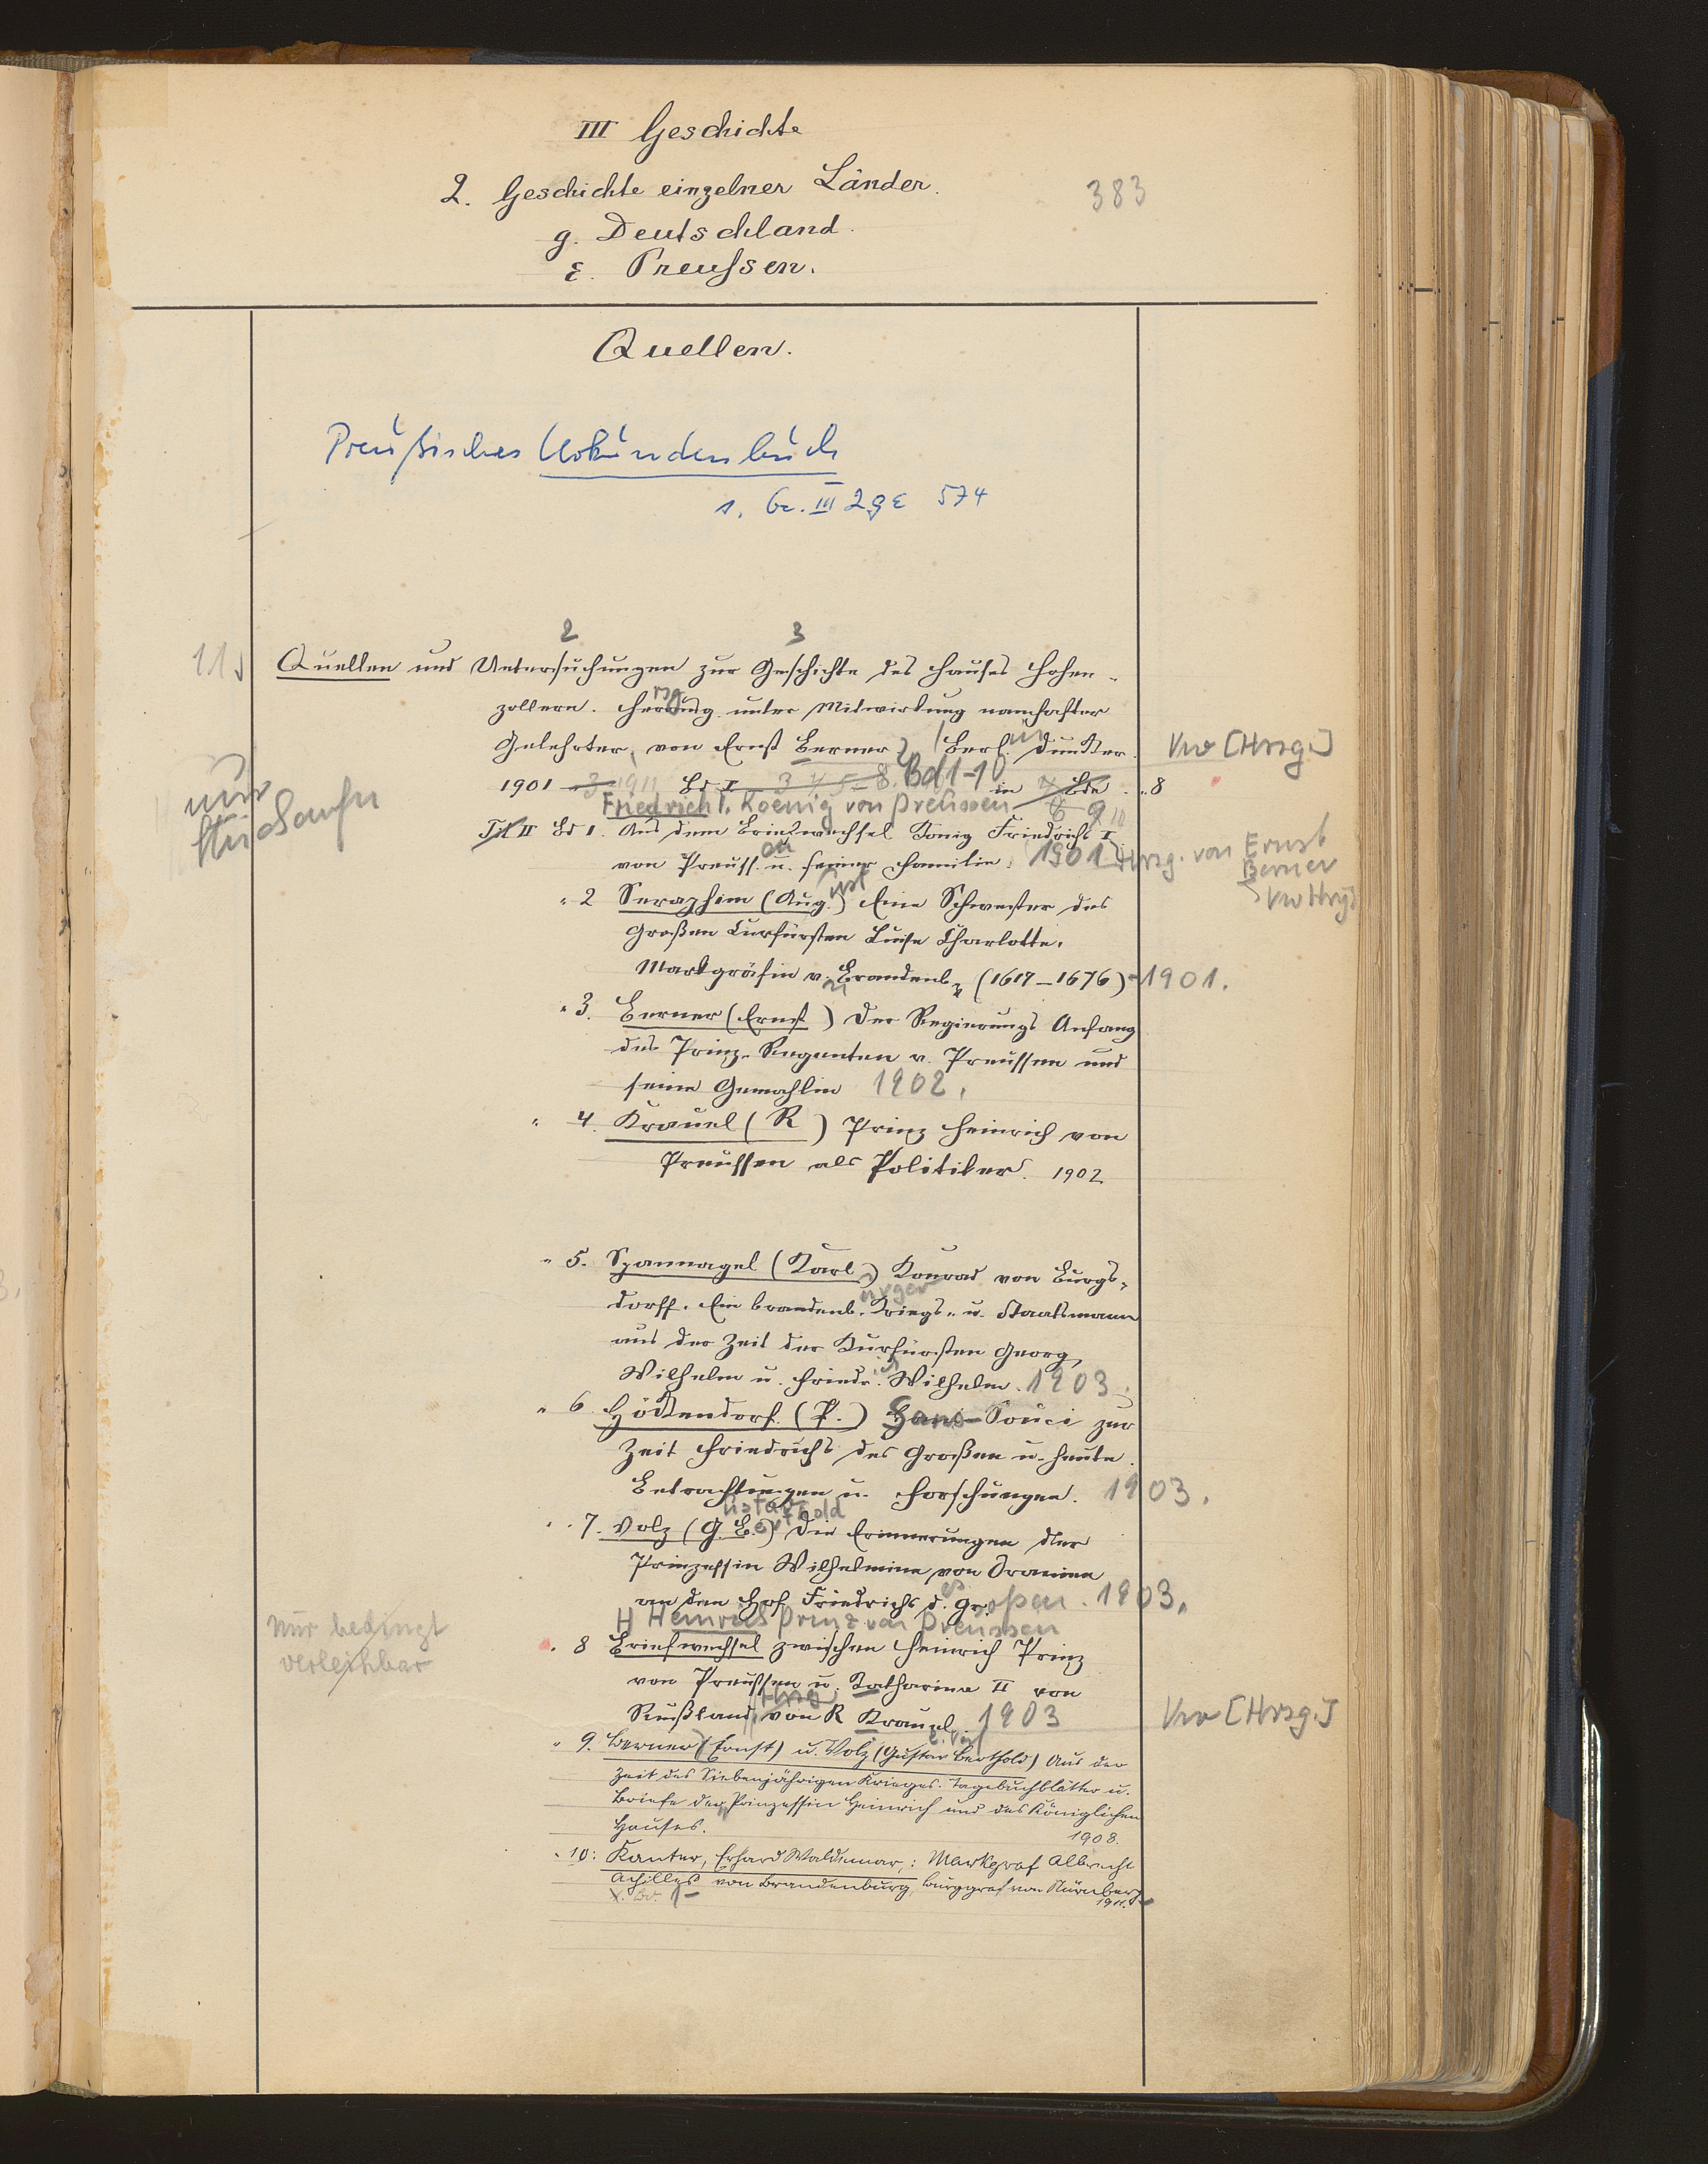 III Geschichte
2. Geschichte einzelner Länder.
383
g. Deutschland.
ε. Preussen.
Quellen.
Preußisches Urkundenbuch
s. Gc. III 2gε 574
2 3
11) Quellen und Untersuchungen zur Geschichte des Hauses Hohen-
zollern. Herausg. unter Mitwirkung namhafter
Gelehrter, von Ernst Berner, Berl. Duncker. Vw [Hrsg.]
nur
1901 - 3 1911 Bd I 3 4 5-8. Bd 1-10 in 7 Bde. 8
Friedrich I. Koenig von Preussen 8 9 10
Bd 1. Aus dem Briefwechsel König Friedrichs I
von Preuss. u. seiner Familie. 1901 Hrsg. von Ernst
Berner
Vw Hrsg
" 2 Seraphim (Aug.) Eine Schwester des
Großen Kurfürsten Luise Charlotte.
Markgräfin v. Brandenb. (1617-1676) 1901.
" 3. Berner (Ernst) Der Regierungs Anfang
des Prinz-Regenten v. Preussen und
seine Gemahlin 1902.
" 4. Krauel (R) Prinz Heinrich von
Preussen als Politiker. 1902
" 5. Spannagel (Karl) Konrad von Burgs-
dorff. Ein brandenb. Kriegs- u. Staatsmann
aus der Zeit der Kurfürsten Georg
Wilhelm u. Friedr. Wilhelm. 1903.
" 6 Höckendorf. (P.) Sans-Souci zur
Zeit Friedrichs des Großen u. heute.
Betrachtungen u. Forschungen. 1903.
ustav erthold
" 7. Volz (G. B.) Die Erinnerungen der
Prinzessin Wilhelmine von Oranien
an den Hof Friedrichs d. Gr. oßen. 1903.
H Heinrich Prinz von Preussen
nur bedingt
verleihbar
" 8 Briefwechsel zwischen Heinrich Prinz
von Preussen u. Katharina II von
Hrsg
Rußland, von R Krauel. 1903 Vw [Hrsg.]
" 9. Berner (Ernst) u. Volz (Gustav Berthold) Aus der
Zeit des Siebenjährigen Krieges. Tagebuchblätter u.
Briefe der Prinzessin Heinrich und des Königlichen
Hauses. 1908.
" 10: Kanter, Erhard Waldemar,: Markgraf Albrecht
Achilles von Brandenburg, Burggraf von Nürnberg
1911.